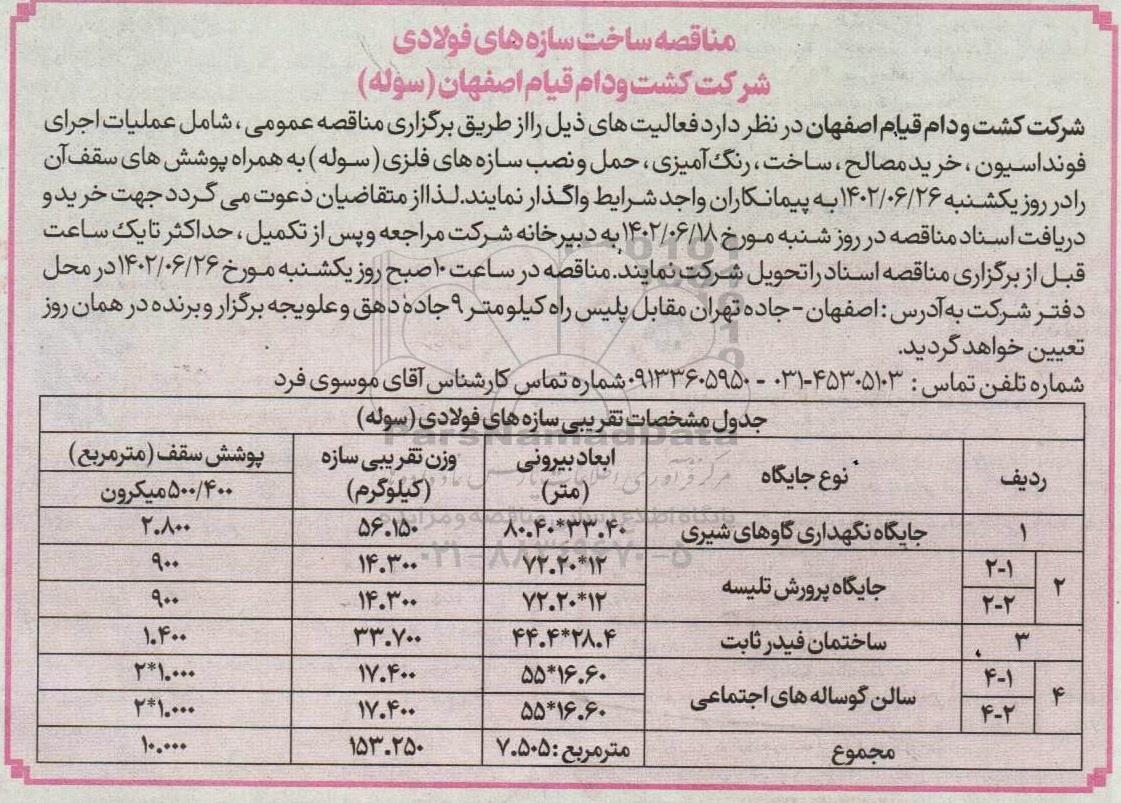 مناقصه ساخت سازه های فولادی
شرکت کشت ودام قیام اصفهان (سوله)
شرکت کشت ودام قیام اصفهان در نظر دارد فعالیت های ذیل رااز طریق برگزاری مناقصه عمومی ، شامل عملیات اجرای
فونداسیون ، خرید مصالح ، ساخت ، رنگ آمیزی ، حمل و نصب سازه های فلزی (سوله) به همراه پوشش های سقف آن
رادر روز یکشنبه ۱۴۰۲/۰۶/۲۶ به پیمانکاران واجد شرایط واگذار نمایند.لذااز متقاضیان دعوت می گردد جهت خرید و
دریافت اسناد مناقصه در روز شنبه مورخ ۱۴۰۲/۰۶/۱۸ به دبیرخانه شرکت مراجعه وپس از تکمیل ، حداکثر تایک ساعت
قبل از برگزاری مناقصه اسناد راتحویل شرکت نمایند.مناقصه در ساعت ۱۰صبح روز یکشنبه مورخ ۱۴۰۲/۰۶/۲۶ در محل
دفتر شرکت به آدرس : اصفهان - جاده تهران مقابل پلیس راه کیلومتر ۹ جاده دهق وعلویجه برگزار و برنده در همان روز
تعیین خواهد گردید.
شماره تلفن تماس : ۴۵۳۰۵۱۰۳-۰۳۱ - ۰۹۱۳۳۶۰۵۹۵۰شماره تماس کارشناس آقای موسوی فرد
جدول مشخصات تقریبی سازه های فولادی (سوله)
ردیف نوع جایگاه ابعاد بیرونی (متر) وزن تقریبی سازه (کیلوگرم) پوشش سقف (مترمربع)
۵۰۰/۴۰۰میکرون
۱ جایگاه نگهداری گاوهای شیری ۸۰.۴۰*۳۳.۴۰ ۵۶.۱۵۰ ۲.۸۰۰
۲ ۲-۱ جایگاه پرورش تلیسه ۷۲.۲۰*۱۲ ۱۴.۳۰۰ ۹۰۰
۲-۲ ۷۲.۲۰*۱۲ ۱۴.۳۰۰ ۹۰۰
۳ ساختمان فیدر ثابت ۴۴.۴*۲۸.۴ ۳۳.۷۰۰ ۱.۴۰۰
۴ ۴-۱ سالن گوساله های اجتماعی ۵۵*۱۶.۶۰ ۱۷.۴۰۰ ۲*۱.۰۰۰
۴-۲ ۵۵*۱۶.۶۰ ۱۷.۴۰۰ ۲*۱.۰۰۰
مجموع مترمربع : ۷.۵۰۵ ۱۵۳.۲۵۰ ۱۰.۰۰۰
ParsNamadData
۰۲۱-۸۸۳۴۹۶۷۰-۵